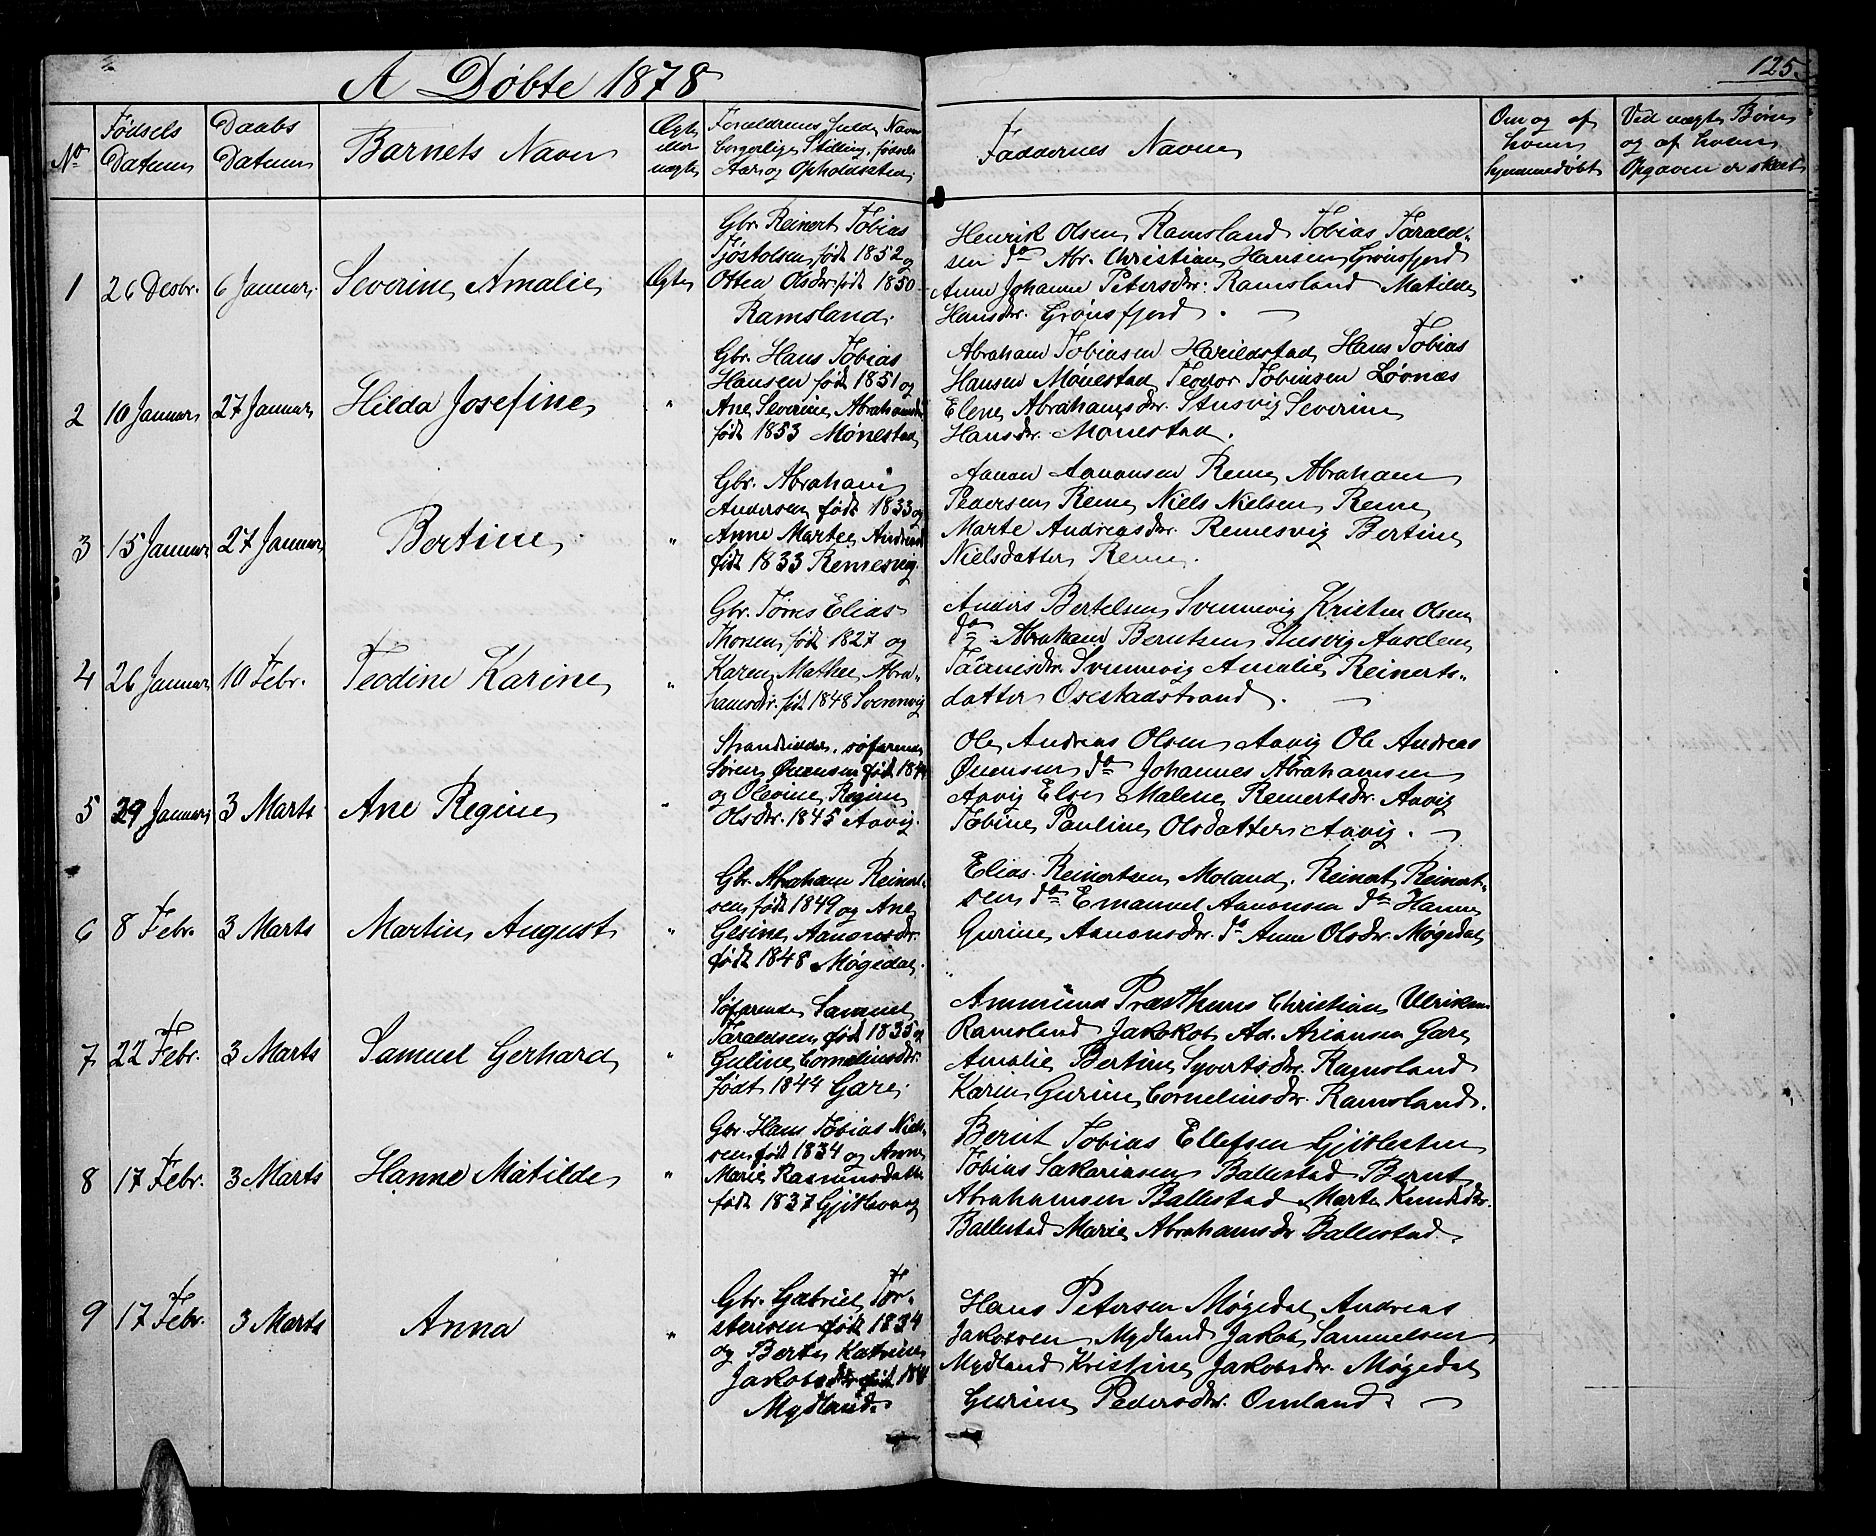 125.
A Døbte 1878
No
Fødsels Datum
Daabs Datum
Barnets Navn
Ægte eller uægte
Forældrenes fulde Navn borgerlige Stilling, fødsels Aar og Opholdssted.
Faddernes Navne
Om og af hvem hjemmedøbt
Ved uægte Børn og af hvem Opgaven er skeet
1 26 Desbr. 6 Januar. Severine Amalie Ægte
Gbr. Reinert Tobias
Tjøstolsen født 1852 og
Ottea Olsdtr. født 1850
Ramsland.
Henrik Olsen Ramsland Tobias Tarald-
sen do Abr. Christian Hansen Grønsfjord
Anne Johanne Petersdtr. Ramsland Matilde
Hansdtr. Grønsfjord.
2 10 Januar 27 Januar Hilda Josefine "
Gbr. Hans Tobias
Hansen født 1851 og
Ane Severine Abrahamsd
født 1853 Mønestad
Abraham Tobiasen Harildstad Hans Tobias
Hansen Mønestad Teodor Tobiasen Løvnæs
Elene Abrahamsdtr. Stusvig Severine
Hansdtr. Mønestad.
3 15 Januar 27 Januar Bertine "
Gbr. Abraham
Andersen født 1833 og
Anne Marte Andreasd
født 1833 Remesvig
Aanon Aanonsen Reme Abraham
Pedersen Reme Niels Nielsen Reme
Marte Andreasdtr. Remesvig Bertine
Nielsdatter Reme.
4 26 Januar 10 Febr. Teodine Karine "
Gbr. Tørres Elias
Thorsen født 1827 og
Karen Mathea Abra-
hamsdtr. født 1848 Svennevig
Anders Bertelsen Svennevig Kristen Olsen
do Abraham Berntsen Stusvig
Svennevig Amalie Reinerts-
datter Osestadstrand.
5 29 Januar 3 Marts Ane Regine "
Strandsidder, søfarende
Søren Ouensen født 1844
og Olevine Regine
Olsdtr. 1845 Aavig.
Ole Andreas Olsen Aavig Ole Andreas
Ouensen do Johannes Abrahamsen
Aavig Else Malene Reinertsdtr. Aavig
Tobine Pauline Olsdatter Aavig.
6 8 Febr. 3 Marts Martin August "
Gbr. Abraham Reinert-
sen født 1849 og Ane
Gesine Aanonsdtr.
født 1848 Møgedal.
Elias Reinertsen Moland, Reinert Reinert-
sen do Emanuel Aanonsen do Hanne
Gurine Aanonsdtr. do Anne Olsdtr. Møgedal
7 22 Febr. 3 Marts Samuel Gerhard "
Søfarende Samuel
Taraldsen født 1835 og
Guline Corneliusdtr.
født 1844 Gare.
Ammund Præsthuus Christian Ulriksen
Ramsland Jakokob Ad. Ariansen Gare
Amalie Bertine Syvertsdtr. Ramsland
Karen Gurine Corneliusdtr. Ramsland.
8 17 Febr. 3 Marts Hanne Matilde "
Gbr. Hans Tobias Niel-
sen født 1834 og Anne
Marie Rasmusdatter
født 1837 Gjitlevaag
Bernt Tobias Ellefsen Gjitlesten
Tobias Sakariasen Ballestad Bernt
Abrahamsen Ballestad Marte Knudsdtr.
Ballestad Marie Abrahamsdtr Ballestad.
9 17 Febr. 3 Marts Anna "
Gbr. Gabriel Tor-
stensen født 1834
og Berte Katrine
Jakobsdtr født 184
Mydland.
Hans Petersen Møgedal Andreas
Jakobsen Mydland Jakob Samuelsen
Mydland Kristine Jakobsdtr. Møgedal
Gurine Pedersdtr. Omland.